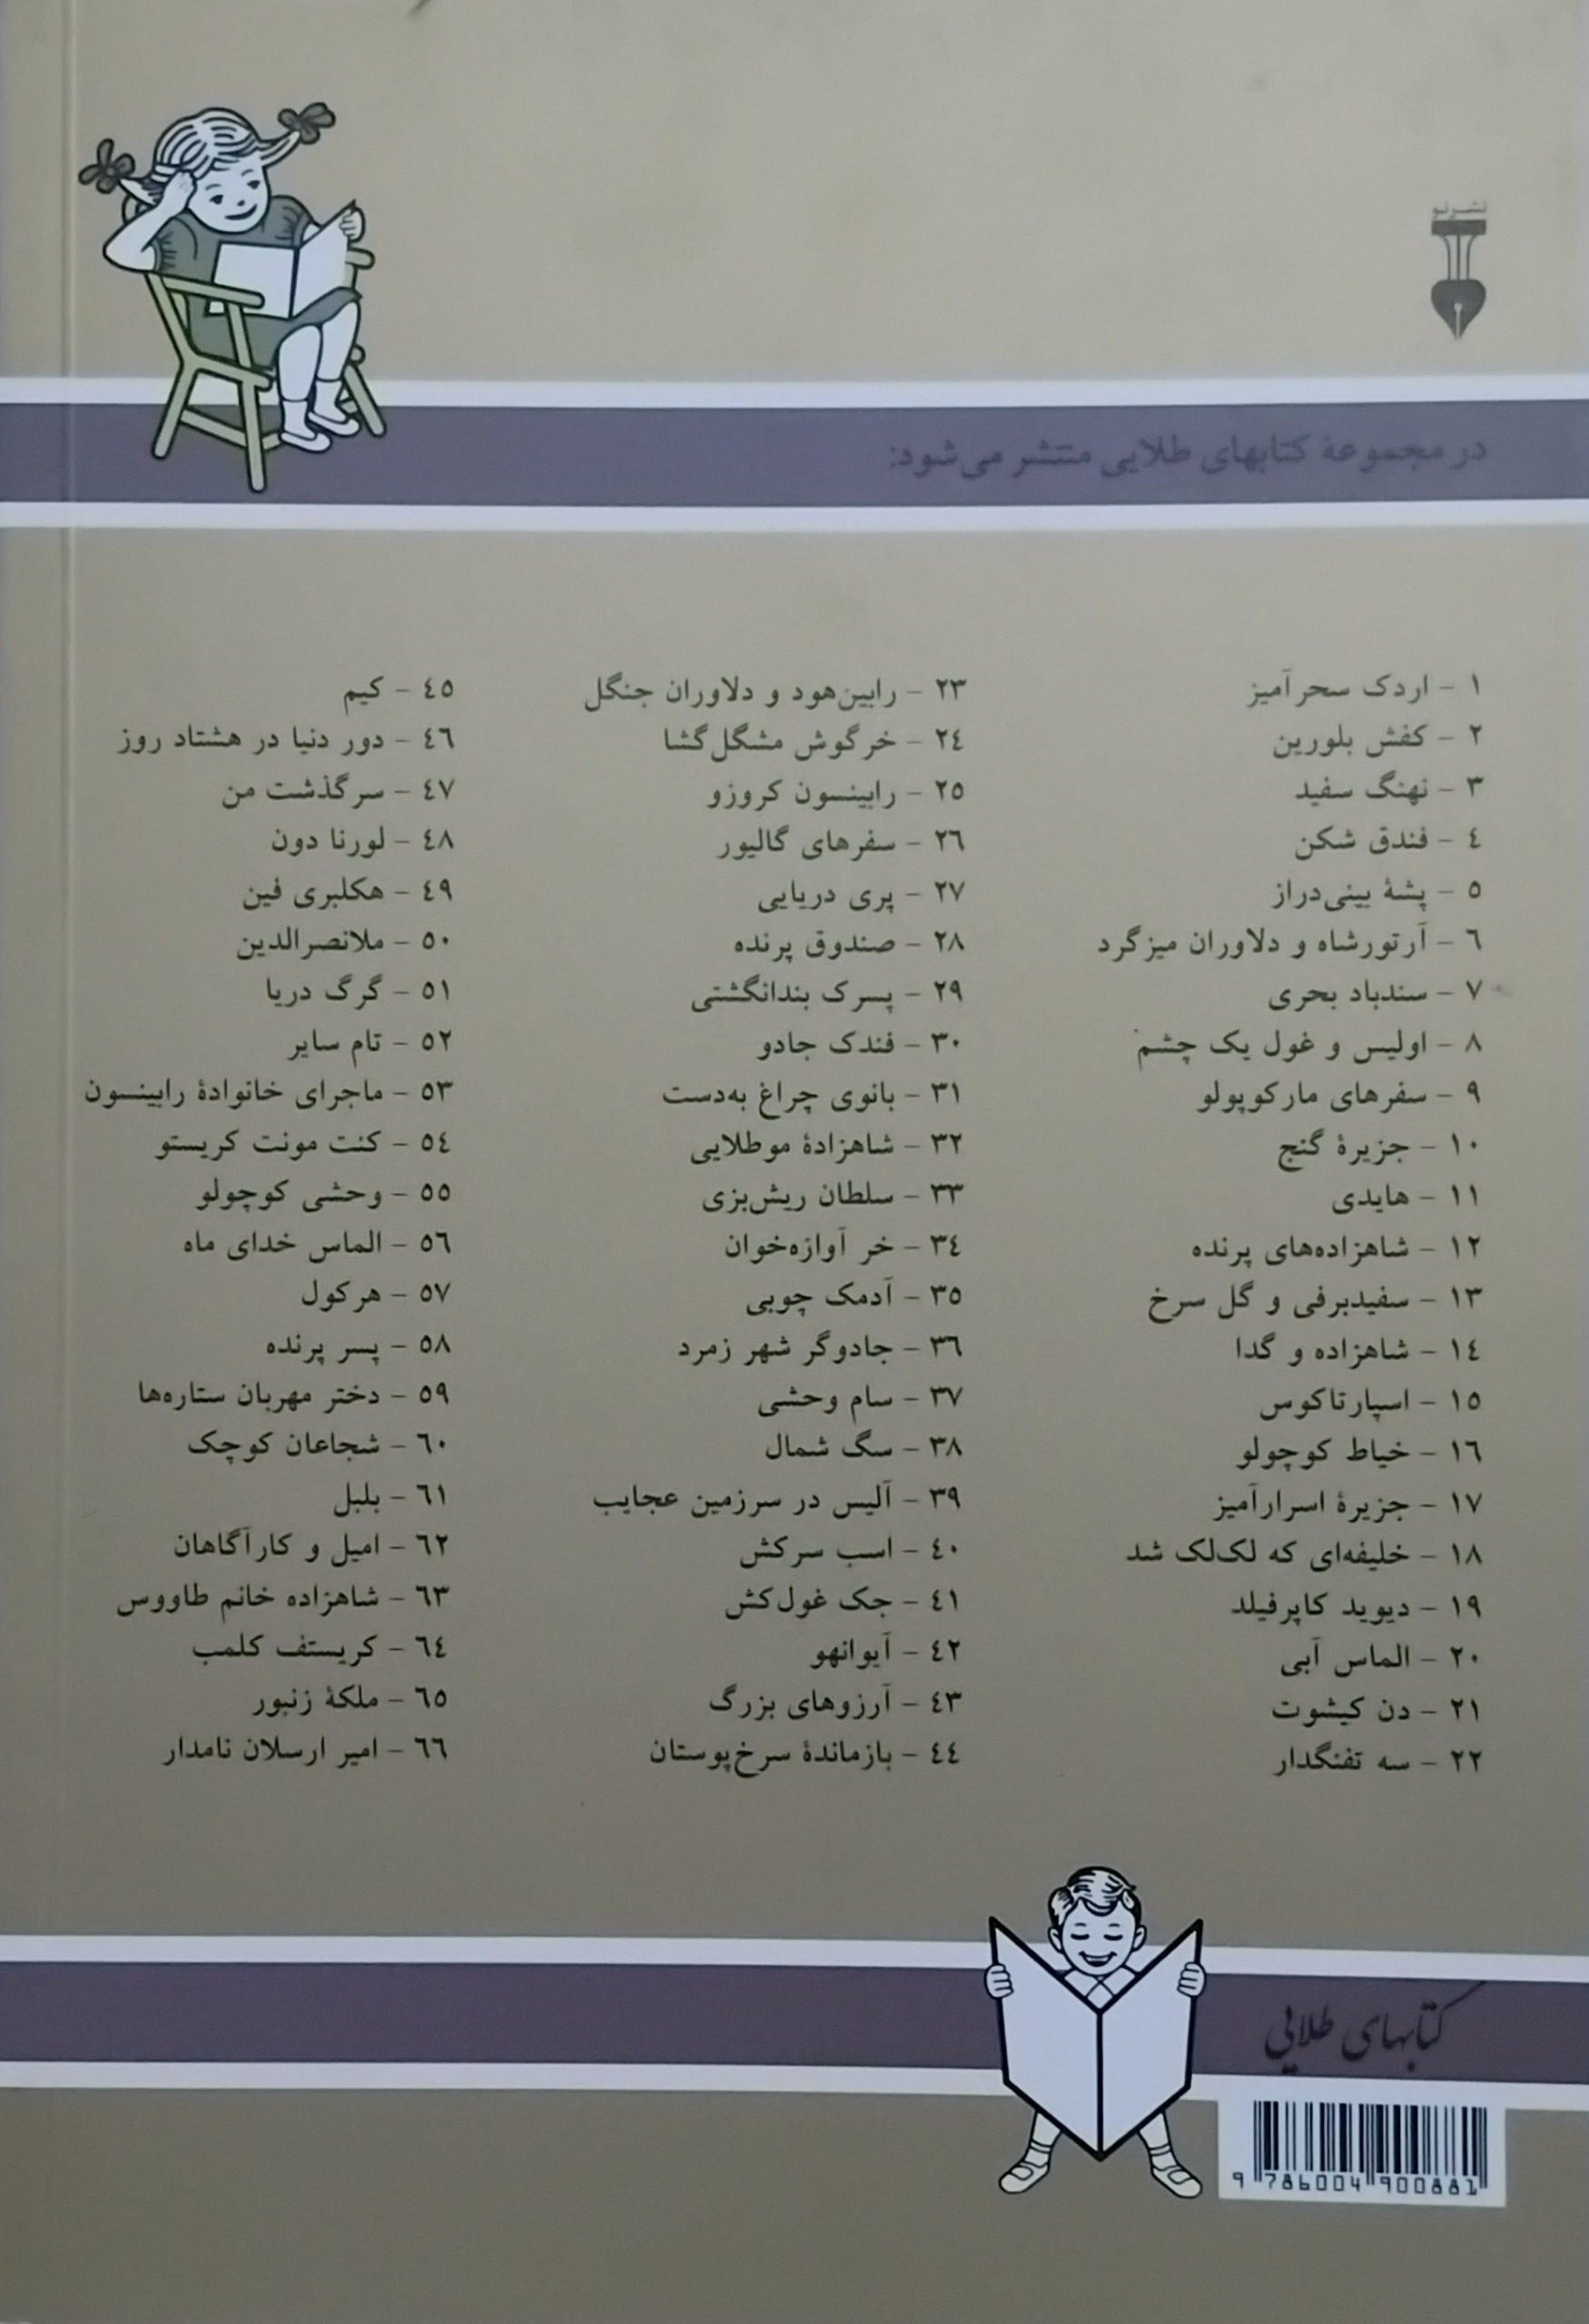 نشر نو
در مجموعهٔ کتابهای طلایی منتشر می‌شود:
١ - اردک سحرآمیز
٢ - کفش بلورین
٣ - نهنگ سفید
٤ - فندق شکن
٥ - پشهٔ بینی‌دراز
٦ - آرتورشاه و دلاوران میزگرد
٧ - سندباد بحری
٨ - اولیس و غول یک چشم
٩ - سفرهای مارکوپولو
١٠ - جزیرهٔ گنج
١١ - هایدی
١٢ - شاهزاده‌های پرنده
١٣ - سفیدبرفی و گل سرخ
١٤ - شاهزاده و گدا
١٥ - اسپارتاکوس
١٦ - خیاط کوچولو
١٧ - جزیرهٔ اسرارآمیز
١٨ - خلیفه‌ای که لک‌لک شد
١٩ - دیوید کاپرفیلد
٢٠ - الماس آبی
٢١ - دن کیشوت
٢٢ - سه تفنگدار
٢٣ - رابین‌هود و دلاوران جنگل
٢٤ - خرگوش مشگل‌گشا
٢٥ - رابینسون کروزو
٢٦ - سفرهای گالیور
٢٧ - پری دریایی
٢٨ - صندوق پرنده
٢٩ - پسرک بندانگشتی
٣٠ - فندک جادو
٣١ - بانوی چراغ به‌دست
٣٢ - شاهزادهٔ موطلایی
٣٣ - سلطان ریش‌بزی
٣٤ - خر آوازه‌خوان
٣٥ - آدمک چوبی
٣٦ - جادوگر شهر زمرد
٣٧ - سام وحشی
٣٨ - سگ شمال
٣٩ - آلیس در سرزمین عجایب
٤٠ - اسب سرکش
٤١ - جک غول‌کش
٤٢ - آیوانهو
٤٣ - آرزوهای بزرگ
٤٤ - بازماندهٔ سرخ‌پوستان
٤٥ - کیم
٤٦ - دور دنیا در هشتاد روز
٤٧ - سرگذشت من
٤٨ - لورنا دون
٤٩ - هکلبری فین
٥٠ - ملانصرالدین
٥١ - گرگ دریا
٥٢ - تام سایر
٥٣ - ماجرای خانوادهٔ رابینسون
٥٤ - کنت مونت کریستو
٥٥ - وحشی کوچولو
٥٦ - الماس خدای ماه
٥٧ - هرکول
٥٨ - پسر پرنده
٥٩ - دختر مهربان ستاره‌ها
٦٠ - شجاعان کوچک
٦١ - بلبل
٦٢ - امیل و کارآگاهان
٦٣ - شاهزاده خانم طاووس
٦٤ - کریستف کلمب
٦٥ - ملکهٔ زنبور
٦٦ - امیر ارسلان نامدار
کتابهای طلایی
9 786004 900881